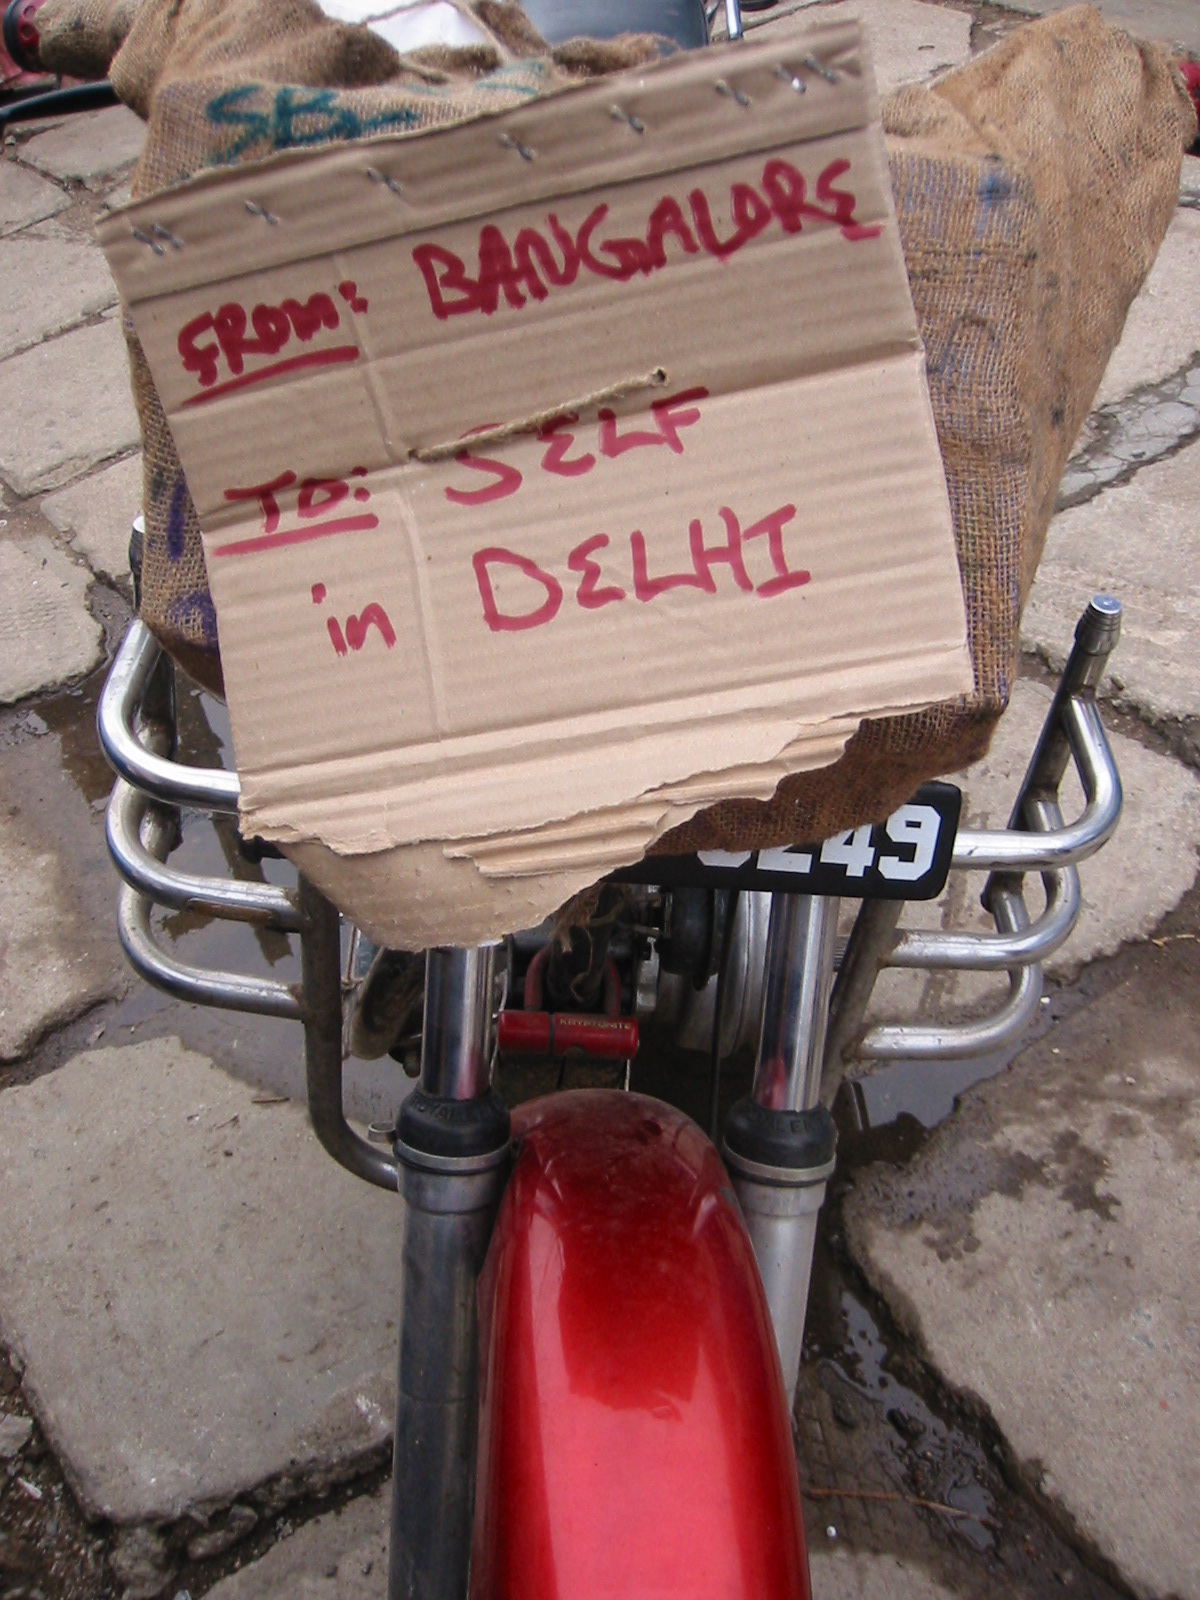 FROM: BANGALORE
TO: SELF
in DELHI
249
KRYPTONITE